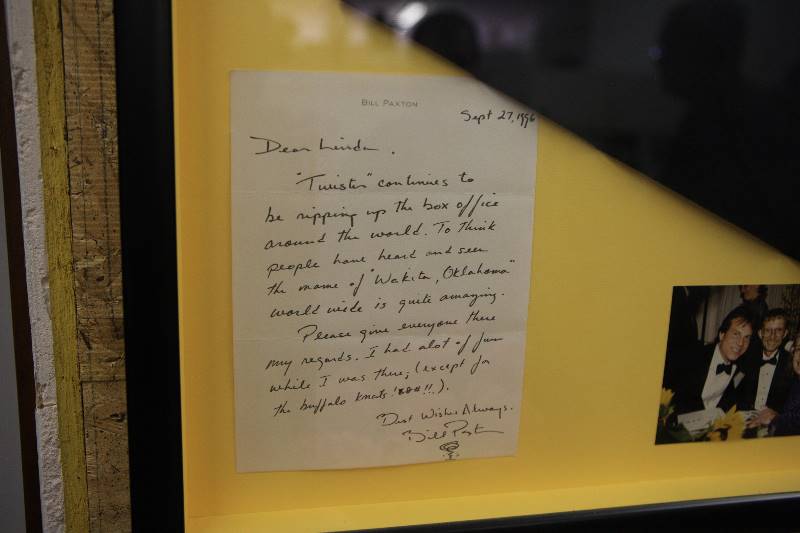 BILL PAXTON
Sept 27, 1996
Dear Linda.
"Twister" continues to
be ripping up the box office
around the world. To think
people have heard and seen
the name of "Wakita, Oklahoma"
world wide is quite amazing.
Please give everyone there
my regards. I had alot of fun
while I was there, (except for
the buffalo knats!*@#!!).
Dust Wishes Always.
Bill Paxton